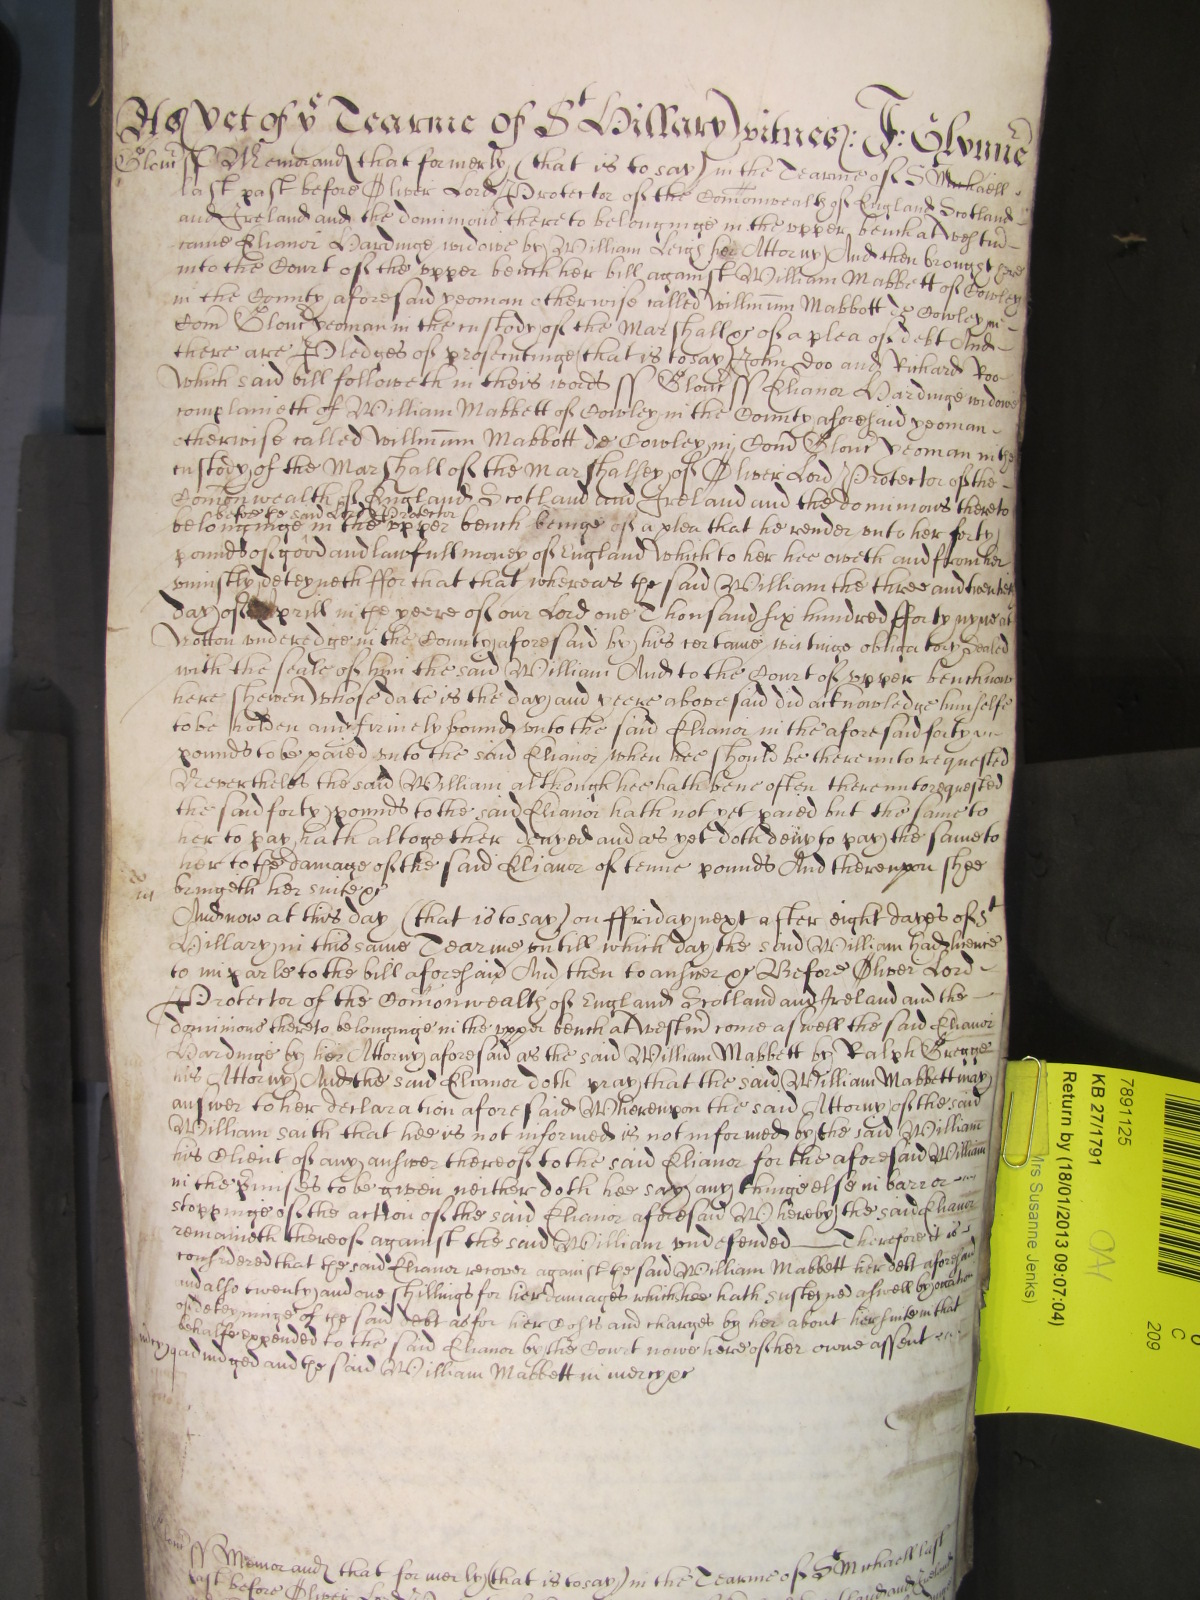 As yet of ye Tearme of St Hillary witnes: J: Glynne
Glouc ss Memorand that formerly (that is to say) in the Tearme of St Michaell
last past before Oliver Lord Protector of the Comonwealth of England Scotland
and Ireland and the dominions thereto belonginge in the upper bench at Westm
came Elianor Hardinge widowe by William Leigh her Attorny And then brought here
into the Court of the upper bench her bill against William Mabbett of Cowley
in the County aforesaid yeoman otherwise called Willmum Mabbott de Cowley in
Com Glouc yeoman in the custody of the Marshall &c of a plea of debt And
there are Pledges of prosecutinge (that is to say) John Doo and Richard Roo
Which said bill followeth in theis words ss Glouc ss Elianor Hardinge widowe
complaineth of William Mabbett of Cowley in the County aforesaid yeoman
otherwise called Willmum Mabbott de Cowley in Com Glouc yeoman in the
custody of the Marshall of the Marshalsey of Oliver Lord Protector of the
Comonwealth of England Scotland and Ireland and the dominions thereto
before the said Lord Protector
belonginge in the upper bench beinge of a plea that he render unto her forty
pounds of good and lawfull money of England which to her hee oweth and from her
uniustly deteyneth ffor that that whereas the said William the three and twentieth
day of Aprill in the yeere of our Lord one Thousand six hundred fforty nyne at
Wotton underedge in the County aforesaid by his certaine writinge obligatory Sealed
with the seale of him the said William And to the Court of upper bench now
here shewen whose date is the day and yeere abovesaid did acknowledge himselfe
to be holden and firmely bound unto the said Elianor in the aforesaid forty
pounds to be paied unto the said Elianor when hee should be thereunto requested
Nevertheles the said William although hee hath bene often thereunto requested
the said forty pounds to the said Elianor hath not yet paied but the same to
her to pay hath altogether denyed and as yet doth deny to pay the same to
her to the damage of the said Elianor of tenne pounds And thereupon shee
bringeth her suite &c
And now at this day (that is to say) on ffriday next after eight dayes of St
Hillary in this same Tearme untill which day the said William had licence
to imparle to the bill aforesaid And then to answer &c Before Oliver Lord
Protector of the Comonwealth of England Scotland and Ireland and the
dominions thereto belonginge in the upper bench at Westm come aswell the said Elianor
Hardinge by her Attorny aforesaid as the said William Mabbett by Ralph Gregge
his Attorny And the said Elianor doth pray that the said William Mabbett may
answer to her declaration aforesaid Whereupon the said Attorny of the said
William saith that hee is not informed is not informed by the said William
his Client of any answer thereof to the said Elianor for the aforesaid William
in the Pmisses to be given neither doth hee say any thinge else in barr or
stoppinge of the action of the said Elianor aforesaid Whereby the said Elianor
remaineth thereof against the said William undefended Therefore it is
considered that the said Elianor recover against the said William Mabbett her debt aforesaid
and also twenty and one shillings for her damages which hee hath susteyned aswell by occation
of deteyninge of the said debt as for her Costs and charges by her about her suite in that
behalfe expended to the said Elianor by the Court nowe here of her owne assent
mercy adiudged and the said William Mabbett in mercy &c
ss Memorand that formerly (that is to say) in the Tearme of St Michaell last
past before Oliver Lord
7891125
KB 27/1791
Return by (18/01/2013 09:07:04)
Mrs Susanne Jenks)
C
209